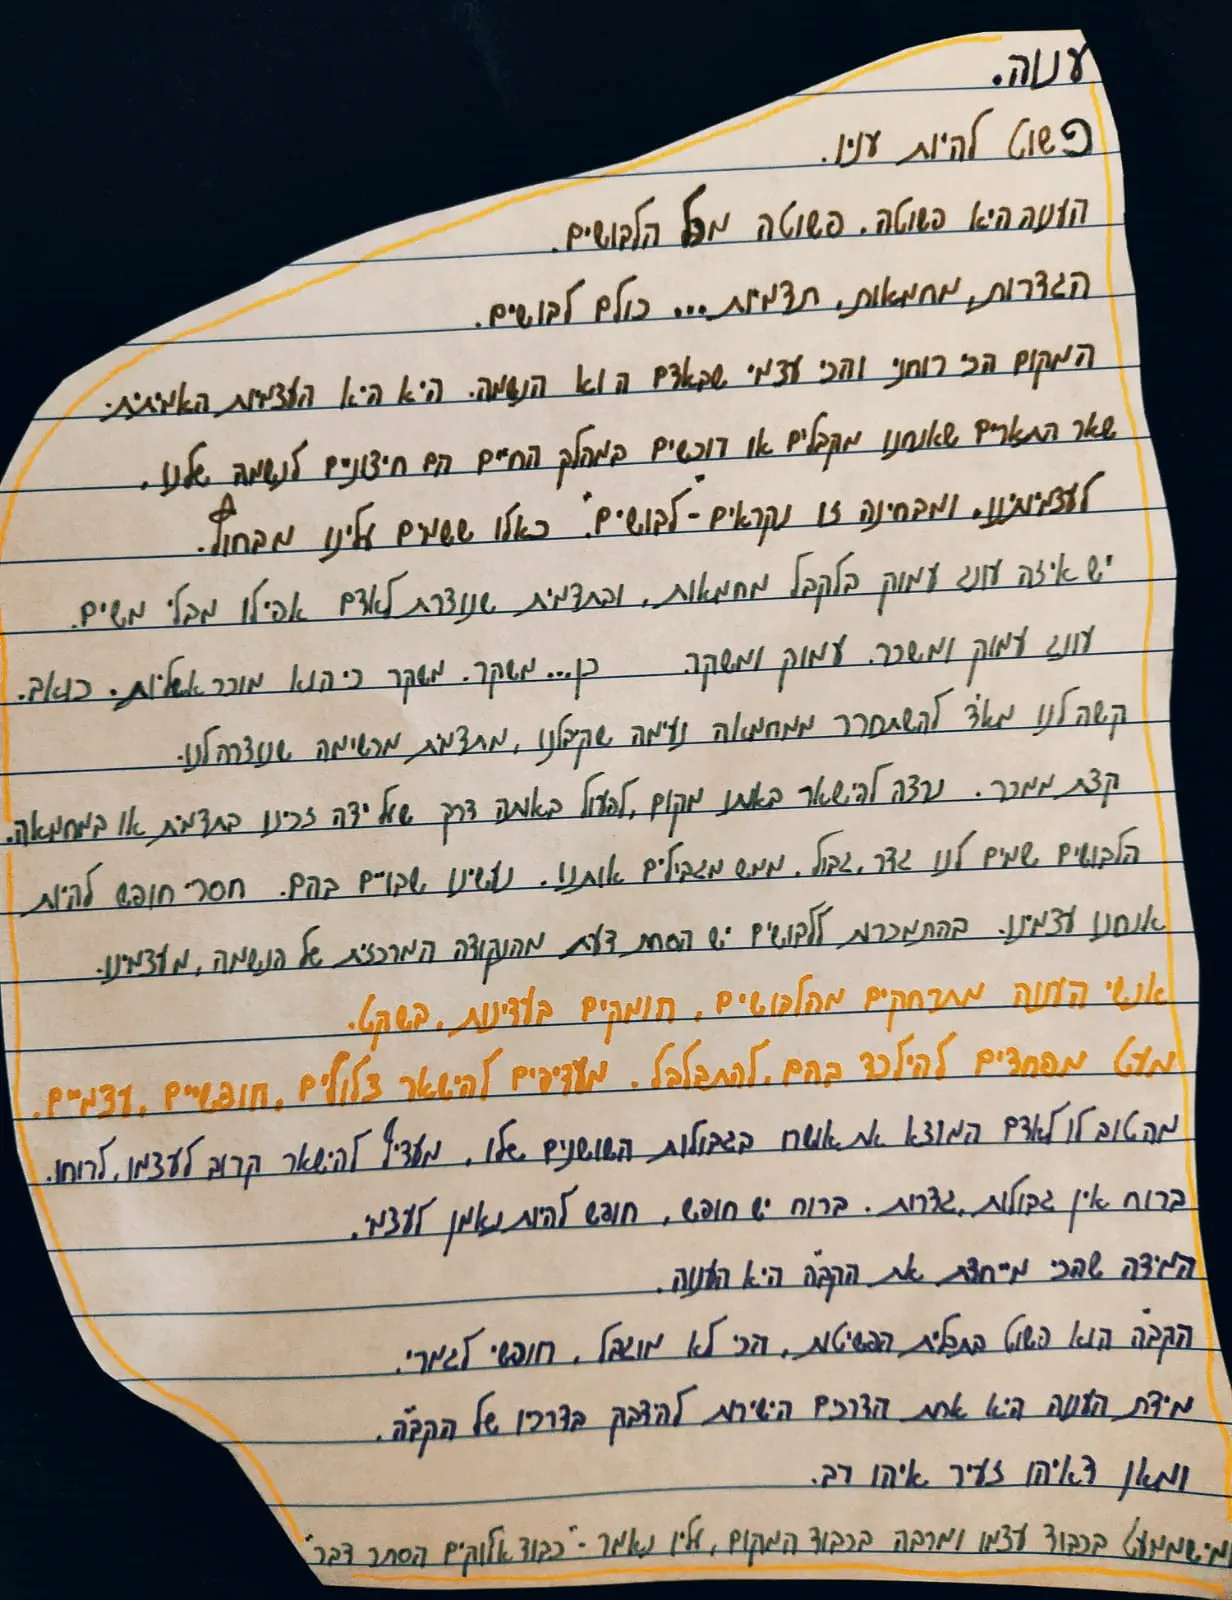 ענווה.
פשוט להיות עניו.
הענווה היא פשוטה. פשוטה מכל הלבושים.
הגדרות, מחמאות, תדמיות... כולם לבושים.
המקום הכי רוחני והכי עצמי שבאדם הוא הנשמה. היא היא העצמיות האמיתית.
שאר התארים שאנחנו מקבלים או רוכשים במהלך החיים הם חיצוניים לנשמה שלנו,
לעצמיותינו, ומבחינה זו נקראים - "לבושים". כאלו ששמים עלינו מבחוץ.
יש איזה עונג עמוק בלקבל מחמאות, ובתדמית שנוצרת לאדם אפילו מבלי משים.
עונג עמוק ומשכר. עמוק ומשקר. כן... משקר. משקר כי הוא מוכר אשליות. כואב.
קשה לנו מאד להשתחרר ממחמאה נעימה שקיבלנו, מתדמית מרשימה שנוצרה לנו.
קצת ממכר. נרצה להישאר באותו מקום, לפעול באותה דרך שעל ידה זכינו בתדמית או במחמאה.
הלבושים שמים לנו גדר, גבול. ממש מגבילים אותנו. נעשינו שבויים בהם. חסרי חופש להיות
אנחנו עצמינו. בהתמכרות ללבושים יש הסחת דעת מהנקודה המרכזית של הנשמה, מעצמינו.
אנשי הענווה מתרחקים מהלבושים, חומקים בעדינות, בשקט.
מעט מפחדים להילכד בהם, להתבלבל. מעדיפים להישאר צלולים, חופשיים, עצמיים.
מה טוב לו לאדם המוצא את אושרו בגבולות השושנים שלו, מעדיף להישאר קרוב לעצמו, לרוחו.
ברוח אין גבולות, גדרות. ברוח יש חופש, חופש להיות נאמן לעצמי.
המידה שהכי מייחדת את הקב"ה היא הענווה.
הקב"ה הוא פשוט בתכלית הפשיטות, הכי לא מוגבל, חופשי לגמרי.
מידת הענווה היא אחת הדרכים הישירות להידבק בדרכיו של הקב"ה.
ומאן דאיהו זעיר איהו רב.
ומי שממעט בכבוד עצמו ומרבה בכבוד המקום, עליו נאמר - "כבוד אלוקים הסתר דבר"